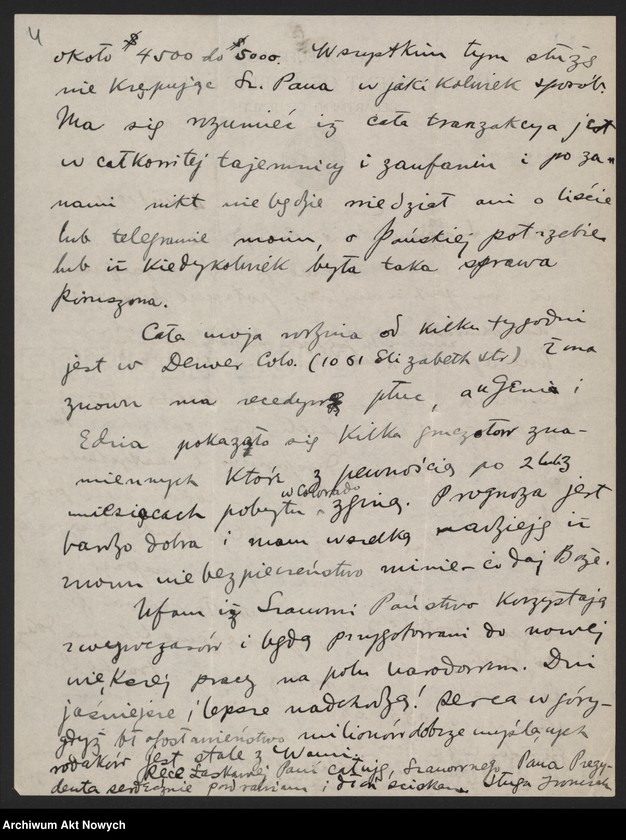 4
około $4500 do $5000. Wszystkim tym służę
nie krępując Sz. Pana w jaki kolwiek sposób.
Ma się rozumieć iż cała tranzakcya jest
w całkowitej tajemnicy i zaufaniu i po za
nami nikt nie będzie wiedział ani o liście
lub telegramie moim, o Pańskiej potrzebie
lub iż kiedykolwiek była taka sprawa
poruszona.
Cała moja rodzina od kilku tygodni
jest w Denver Colo. (1061 Elizabeth str) Żona
znowu ma recedywę płuc, a u Genia i
Edzia pokazało się kilka gruczołów zna-
miennych które z pewnością po 2 lub 3
miesiącach pobytu w Colorado zginą. Prognoza jest
bardzo dobra i mam wszelką nadzieję iż
znowu niebezpieczeństwo minie – co daj Boże.
Ufam iż Szanowni Państwo korzystają
z wywczasów i będą przygotowani do nowej
większej pracy na polu narodowem. Dni
jaśniejsze i lepsze nadchodzą! serca w góry –
gdyż błogosławieństwo milionów dobrze myślących
rodaków jest stale z Wami.
Ręce Łaskawej Pani całuję, Szanownego Pana Prezy-
denta serdecznie pozdrawiam i dłoń ściskam. Sługa
Archiwum Akt Nowych